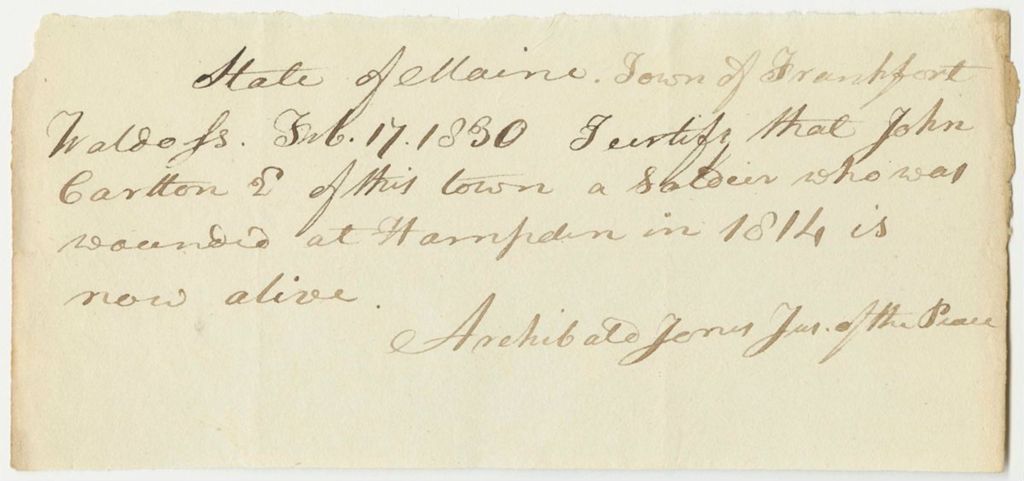 State of Maine. Town of Frankfort
Waldo ss. Feb. 17. 1830 I certify that John
Carlton 2 of this town a Soldier who was
wounded at Hampden in 1814 is
now alive.
Archibald Jones Jus. of the Peace